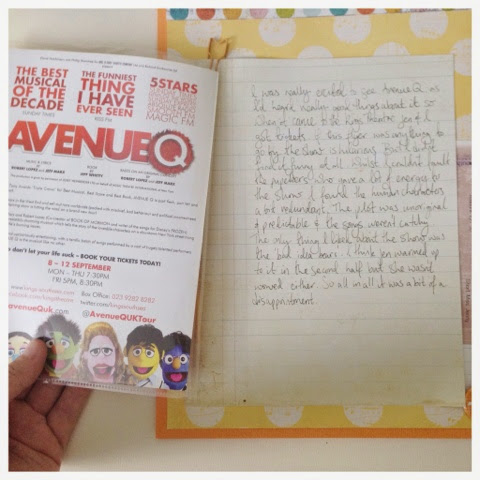 THE BEST
MUSICAL
OF THE
DECADE
SUNDAY TIMES
THE FUNNIEST
THING
I HAVE
EVER SEEN
KISS FM
5STARS
MAGIC FM
AVENUE Q
MUSIC & LYRICS BY
ROBERT LOPEZ and JEFF MARX
BOOK BY
JEFF WHITTY
ROBERT LOPEZ and JEFF MARX
don't let your life suck – BOOK YOUR TICKETS TODAY!
8 – 12 SEPTEMBER
MON – THU 7:30PM
FRI 5PM, 8:30PM
Box Office: 023 9282 8282
@AvenueQUKTour
I was really excited to see Avenue Q as
I'd heard really good things about it so
when it came to the Kings theatre Jen & I
got tickets. If this flyer was anything to
go by the show is hilarious. But I didn't
find it funny at all. Whilst I couldn't fault
the puppeteers who gave a lot of energy to
the show I found the human characters
a bit redundant. The plot was unoriginal
& predictable & the songs weren't catchy.
The only thing I liked about the show was
the bad idea bears. I think Jen warmed up
to it in the second half but she wasn't
wowed either. So all in all it was a bit of a
disappointment.